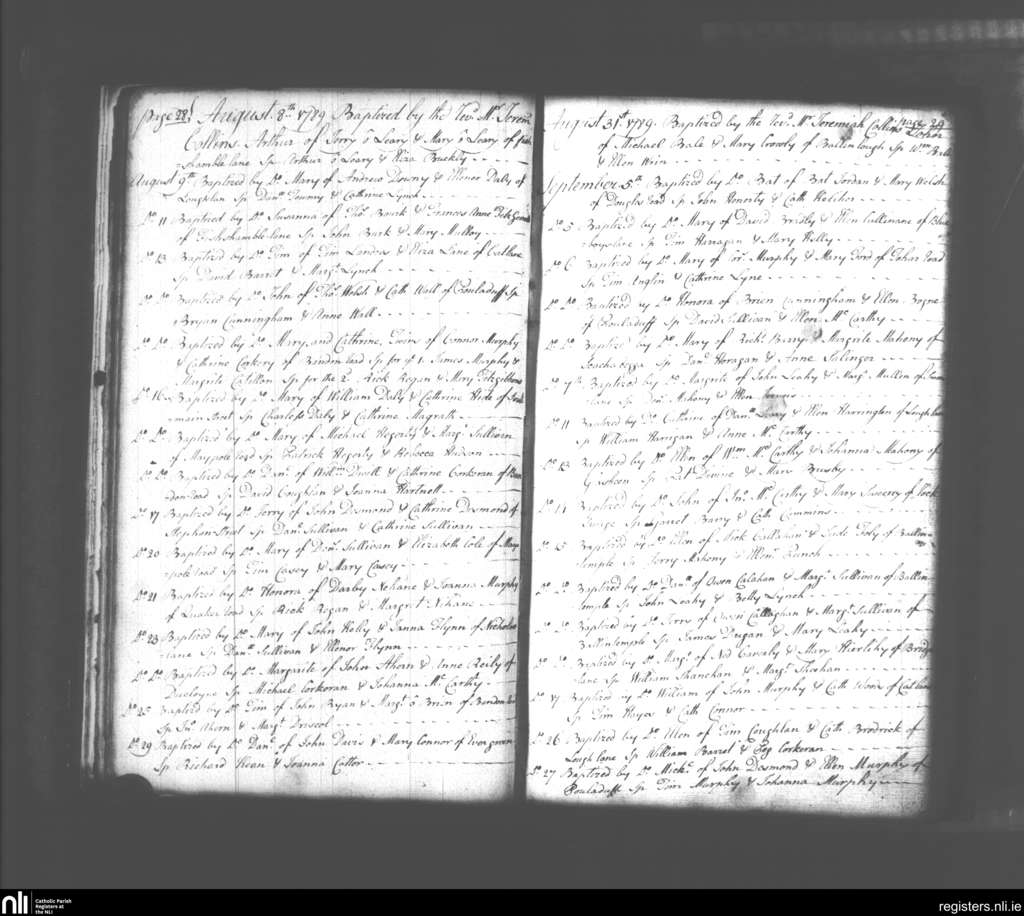 Page 28 August 8th 1789 Baptized by the Revd Mr Jerem
Collins Arthur of Jerry o Leary & Mary o Leary of fish
shamble lane Sp Arthur o Leary & Eliza Buckley
August 9th Baptized by Do Mary of Andrew Downy & Ellenor Daly of
Loughlan Sp Danl Downy & Cathrine Lynch
Do 11 Baptized by Do Susanna of Thos Bourk & Frances Anne Fitz
of Fishshamble lane Sp John Burk & Mary Mulloy
Do 13 Baptized by Do Tim of Tim Landers & Eliza Lane of
Sp David Barrit & Margt Lynch
Do Do Baptized by Do John of Thos Welsh & Cath Wall of Pouladuff Sp
Bryan Cunningham & Anne Wall
Do Do Baptized by Do Mary and Cathrine Twins of Connor Murphy
& Catherine Corkery of Bandon road Sp for ye 1 James Murphy &
Margrite Sp for the 2d Rick Regan & Mary Fitzgibbons
Do 16 Baptized by Do Mary of William Daly & Cathrine Hyde of
main street Sp Charless Daly & Cathrine Magrath
Do Do Baptized by Do Mary of Michael Hegerty & Margt Sullivan
of Maypole road Sp Patrick Hegerty & Rebecca Hudson
Do Do Baptized by Do Danl of Willm & Cathrine Corkeran of Ban
don road Sp David Coughlan & Joanna Hartnett
Do 17 Baptized by Do Jerry of John Desmond & Cathrine Desmond of
Stephen Street Sp Danl Sullivan & Cathrine Sullivan
Do 20 Baptized by Do Mary of Danl Sullivan & Elizabeth Cole of May
pole road Sp Tim Casey & Mary Casey
Do 21 Baptized by Do Honora of Darby Nehane & Joanna Murphy
of Quaker road Sp Rick Regan & Margrit Nihane
Do 23 Baptized by Do Mary of John Kelly & Janna Flynn of Nicholas
lane Sp Danl Sullivan & Ellenor Flynn
Do Do Baptized by Do Margarite of John Ahern & Anne Reily of
Sp Michael Corkoran & Johanna Mc Carthy
Do 25 Baptized by Do Tim of John Ryan & Margt o Brien of Bandon road
Sp Jno Ahern & Margt Driscol
Do 29 Baptized by Do Danl of John Davis & Mary Connor of Evergreen
Sp Richard Kean & Joanna Cotter
August 31st 1789. Baptized by the Revd Mr Jeremiah Collins page 29
of Michael Bale & Mary Crowly of Ballinlough Sp Wm
& Ellen Wrin
September 5th Baptized by Do Bat of Bat Jordan & Mary Welsh
of Douglas road Sp John & Cath
Do 5 Baptized by Do Mary of David & Ellen Cullinane of Blue
boys lane Sp Tim Hanagan & Mary Kelly
Do 6 Baptized by Do Mary of Cors Murphy & Mary Ford of Tohar road
Sp Tim Anglin & Cathrine Lyne
Do Do Baptized by Do Honora of Brien Cunningham & Ellen
of Pouladuff Sp David Sullivan & Ellen Mc Carthy
Do Do Baptized by Do Mary of Richd Barry & Margrite Mahony of
Sp Danl Horagan & Anne Salinger
Do 7th Baptized by Do Margrite of John Leahy & Margt Mullin of
lane Sp Danl Mahony & Ellen
Do 11 Baptized by Do Cathrine of Danl Leary & Ellen Harrington of Lough lane
Sp William Harrigan & Anne Mc Carthy
Do 13 Baptized by Do Ellen of Wm Mc Carthy & Johanna Mahony of
Sp Pat & Mary
Do 14 Baptized by Do John of Jno Mc Carthy & Mary Sweeny of
Sp Garret Barry & Cath Cummins
Do 15 Baptized by Do Ellen of Mick Callahan & Jude Foly of Ballin
temple Sp Jerry Mahony & Ellen
Do Do Baptized by Do Danl of Owen Calahan & Margt Sullivan of Ballin
temple Sp John Leahy & Betty Lynch
Do Do Baptized by Do Jerry of Owen Callaghan & Margt Sullivan of
Ballintemple Sp James Dugan & Mary Leahy
Do Do Baptized by Do Margt of Ned & Mary Hierlihy of Bridge
lane Sp William Shanehan & Margt Shehan
Do 17 Baptized by Do William of John Murphy & Cath of Cat lane
Sp Tim Hayes & Cath Connor
Do 26 Baptized by Do Ellen of Tim Coughlan & Cath Brodrick of
Lough lane Sp William Barret & Corkeran
Do 27 Baptized by Do Mickl of John Desmond & Ellen Murphy of
Pouladuff Sp Tim Murphy & Johanna Murphy
nli Catholic Parish
Registers at
the NLI
registers.nli.ie